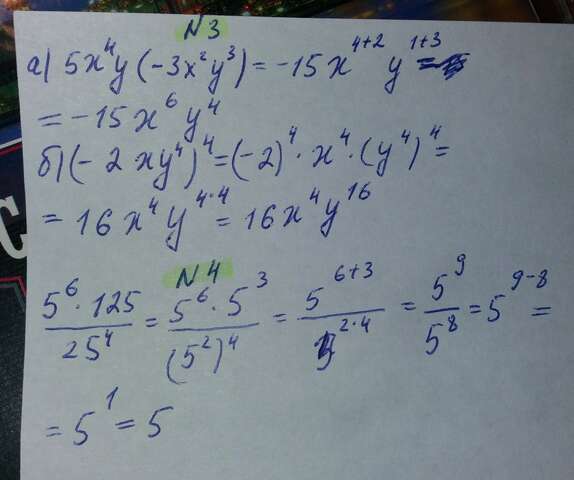 N3
а) 5x⁴y(-3x²y³) = -15x⁴⁺² y¹⁺³ =
= -15x⁶y⁴
б) (-2xy⁴)⁴ = (-2)⁴ · x⁴ · (y⁴)⁴ =
= 16x⁴y⁴·⁴ = 16x⁴y¹⁶
N4
5⁶ · 125 / 25⁴ = 5⁶ · 5³ / (5²)⁴ = 5⁶⁺³ / 5²·⁴ = 5⁹ / 5⁸ = 5⁹⁻⁸ =
= 5¹ = 5